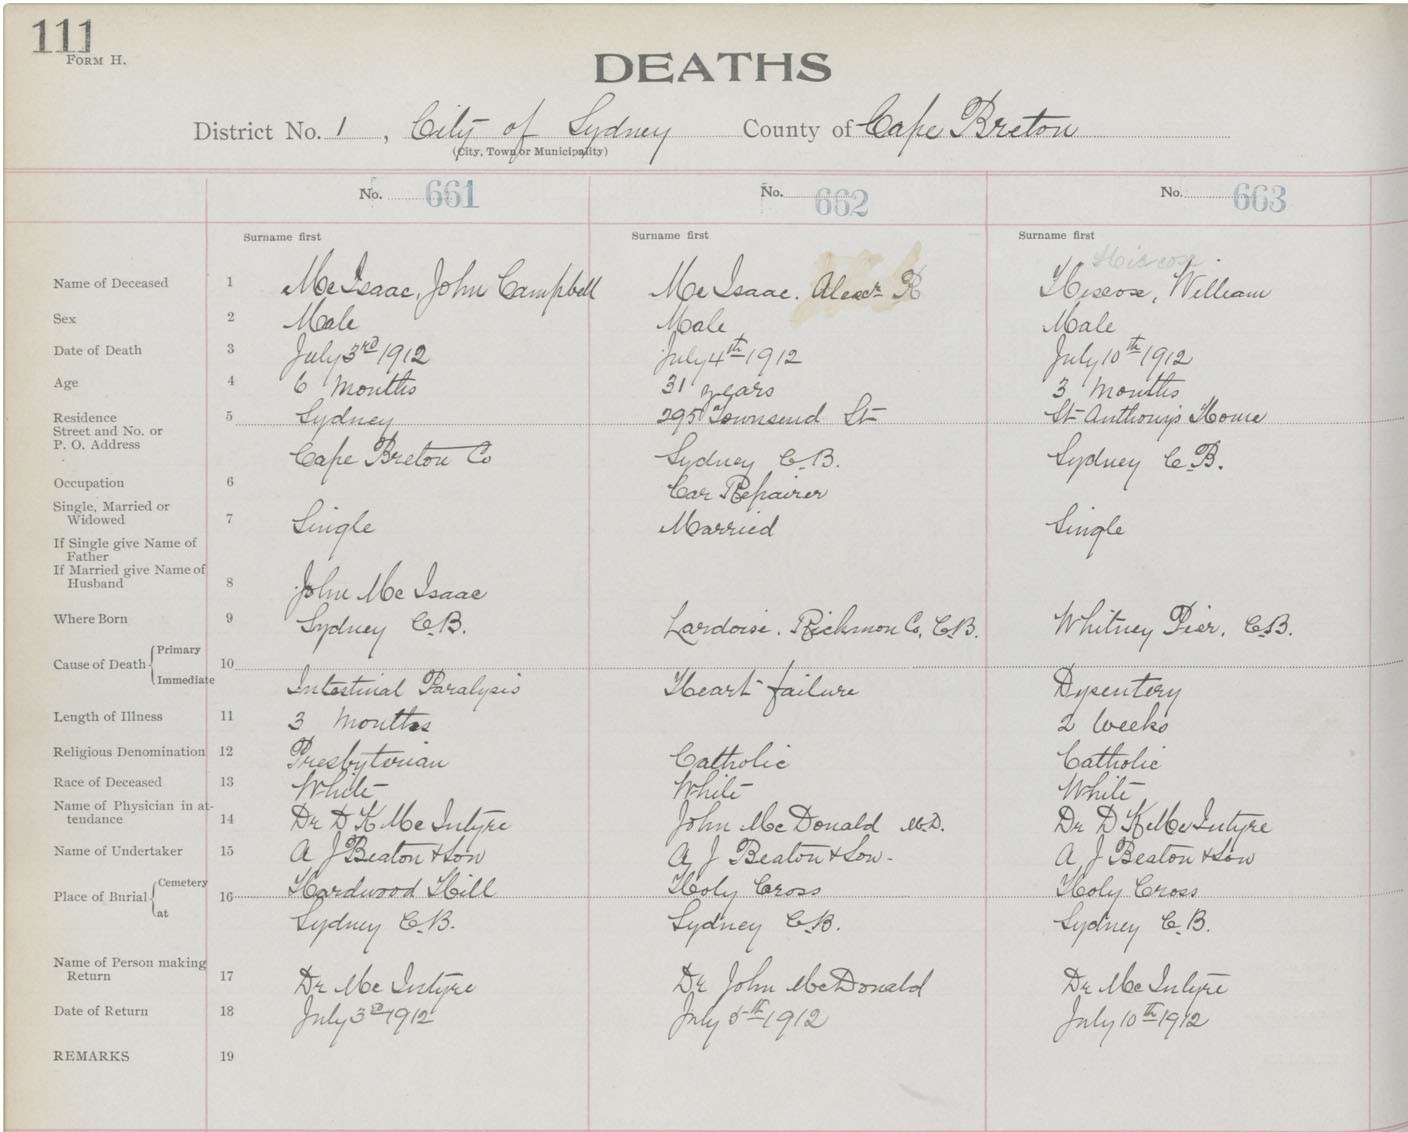 111
FORM H.
DEATHS
District No. 1, City of Sydney County of Cape Breton
(City, Town or Municipality)
No. 661 No. 662 No. 663
Surname first Surname first Surname first
Hiscose
Name of Deceased 1 McIsaac, John Campbell McIsaac. Alexr R Hiscose, William
Sex 2 Male Male Male
Date of Death 3 July 3rd 1912 July 4th 1912 July 10th 1912
Age 4 6 months 31 years 3 months
Residence 5 Sydney 295 Townsend St St Anthony's Home
Street and No. or
P. O. Address Cape Breton Co Sydney C.B. Sydney C.B.
Occupation 6 Car Repairer
Single, Married or
Widowed 7 Single Married Single
If Single give Name of
Father
If Married give Name of
Husband 8 John McIsaac
Where Born 9 Sydney C.B. Lardoise. Richmon Co, C.B. Whitney Pier, C.B.
Cause of Death Primary 10
Immediate Intestinal Paralysis Heart failure Dysentery
Length of Illness 11 3 months 2 weeks
Religious Denomination 12 Presbyterian Catholic Catholic
Race of Deceased 13 White White White
Name of Physician in at-
tendance 14 Dr D K McIntyre John McDonald M.D. Dr D K McIntyre
Name of Undertaker 15 A J Beaton & Son A J Beaton & Son- A J Beaton & Son
Place of Burial Cemetery 16 Hardwood Hill Holy Cross Holy Cross
at Sydney C.B. Sydney C.B. Sydney C.B.
Name of Person making
Return 17 Dr McIntyre Dr John McDonald Dr McIntyre
Date of Return 18 July 3rd 1912 July 5th 1912 July 10th 1912
REMARKS 19